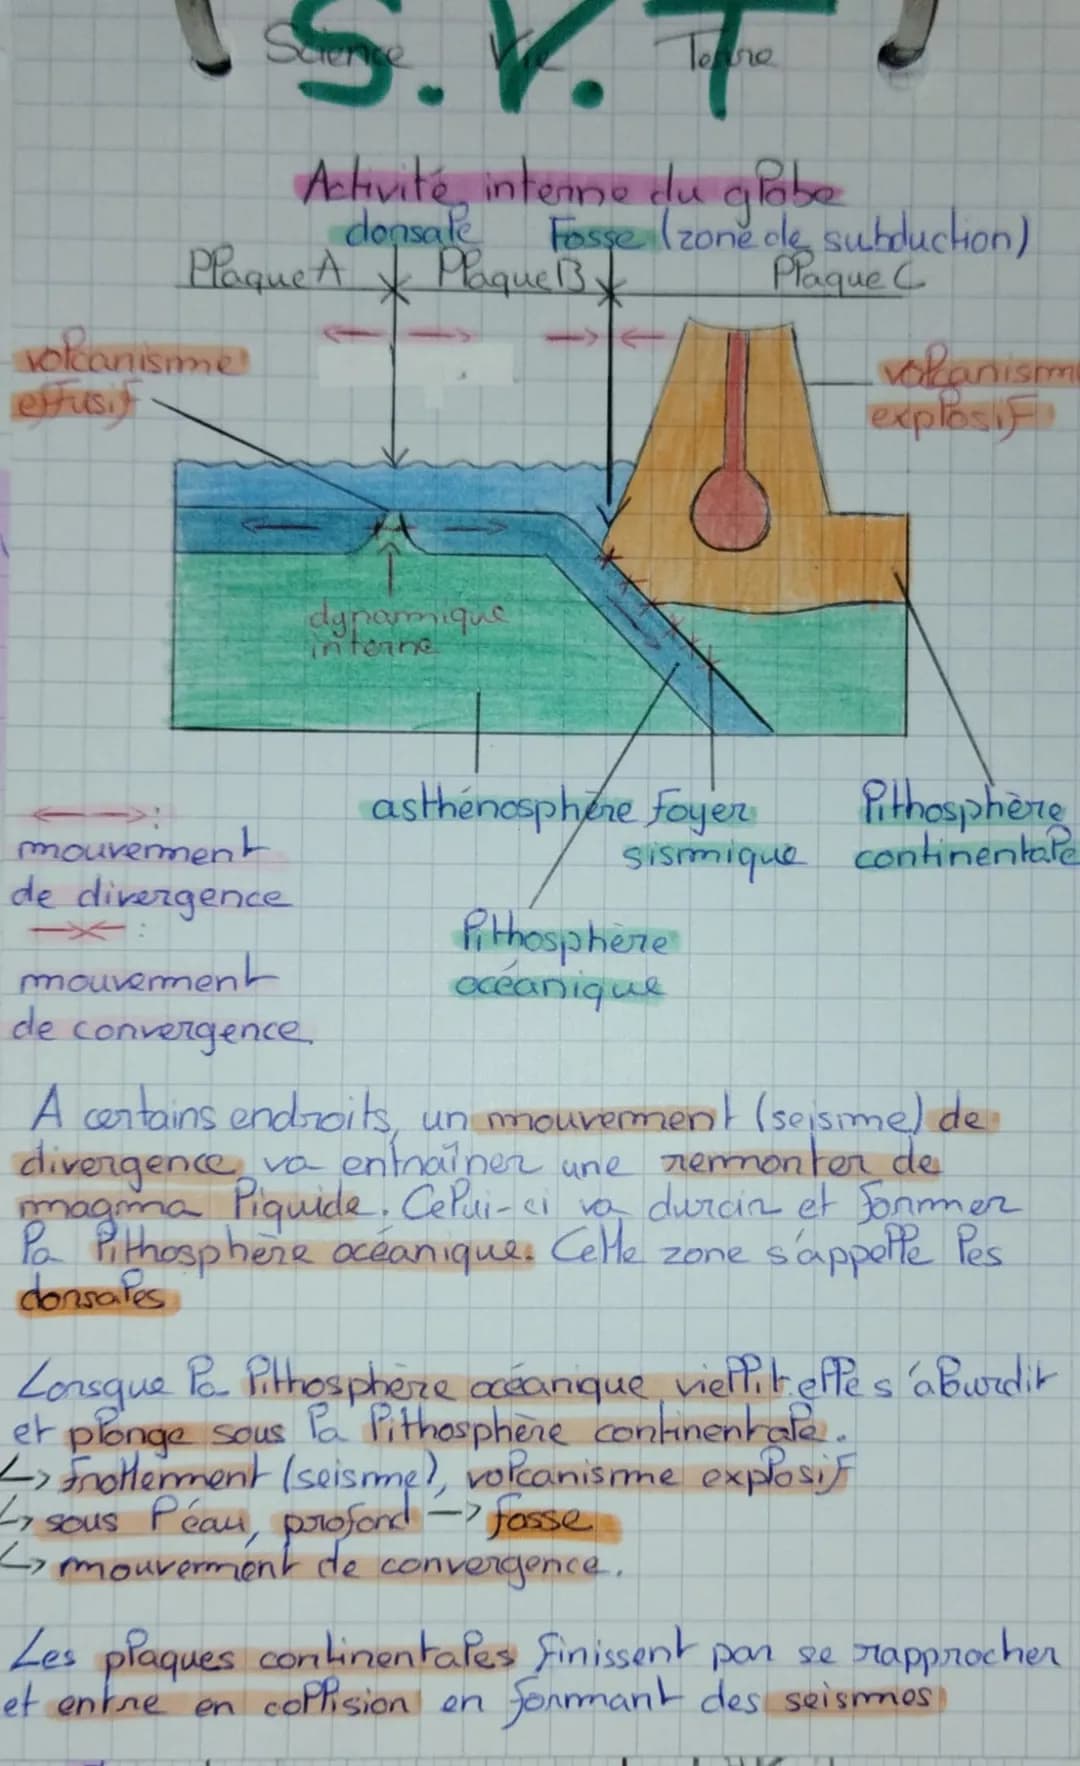 S.V.T
Science Vie Terre
Activité interne du globe
dorsale Fosse (zone de subduction)
Plaque A Plaque B Plaque C
volcanisme
effusif
volcanism
explosif
dynamique
interne
asthénosphère foyer
sismique
lithosphère
continentale
lithosphère
océanique
:
mouvement
de divergence
:
mouvement
de convergence
A certains endroits, un mouvement (seisme) de
divergence va entraîner une remonter de
magma liquide. Celui-ci va durcir et former
la lithosphère océanique. Cette zone s'appelle les
dorsales
Lorsque la lithosphère océanique viellit elle s'alourdit
et plonge sous la lithosphère continentale.
↳ frottement (seisme), volcanisme explosif
↳ sous l'éau, profond -> fosse
↳ mouvement de convergence.
Les plaques continentales finissent par se rapprocher
et entre en collision en formant des seismes